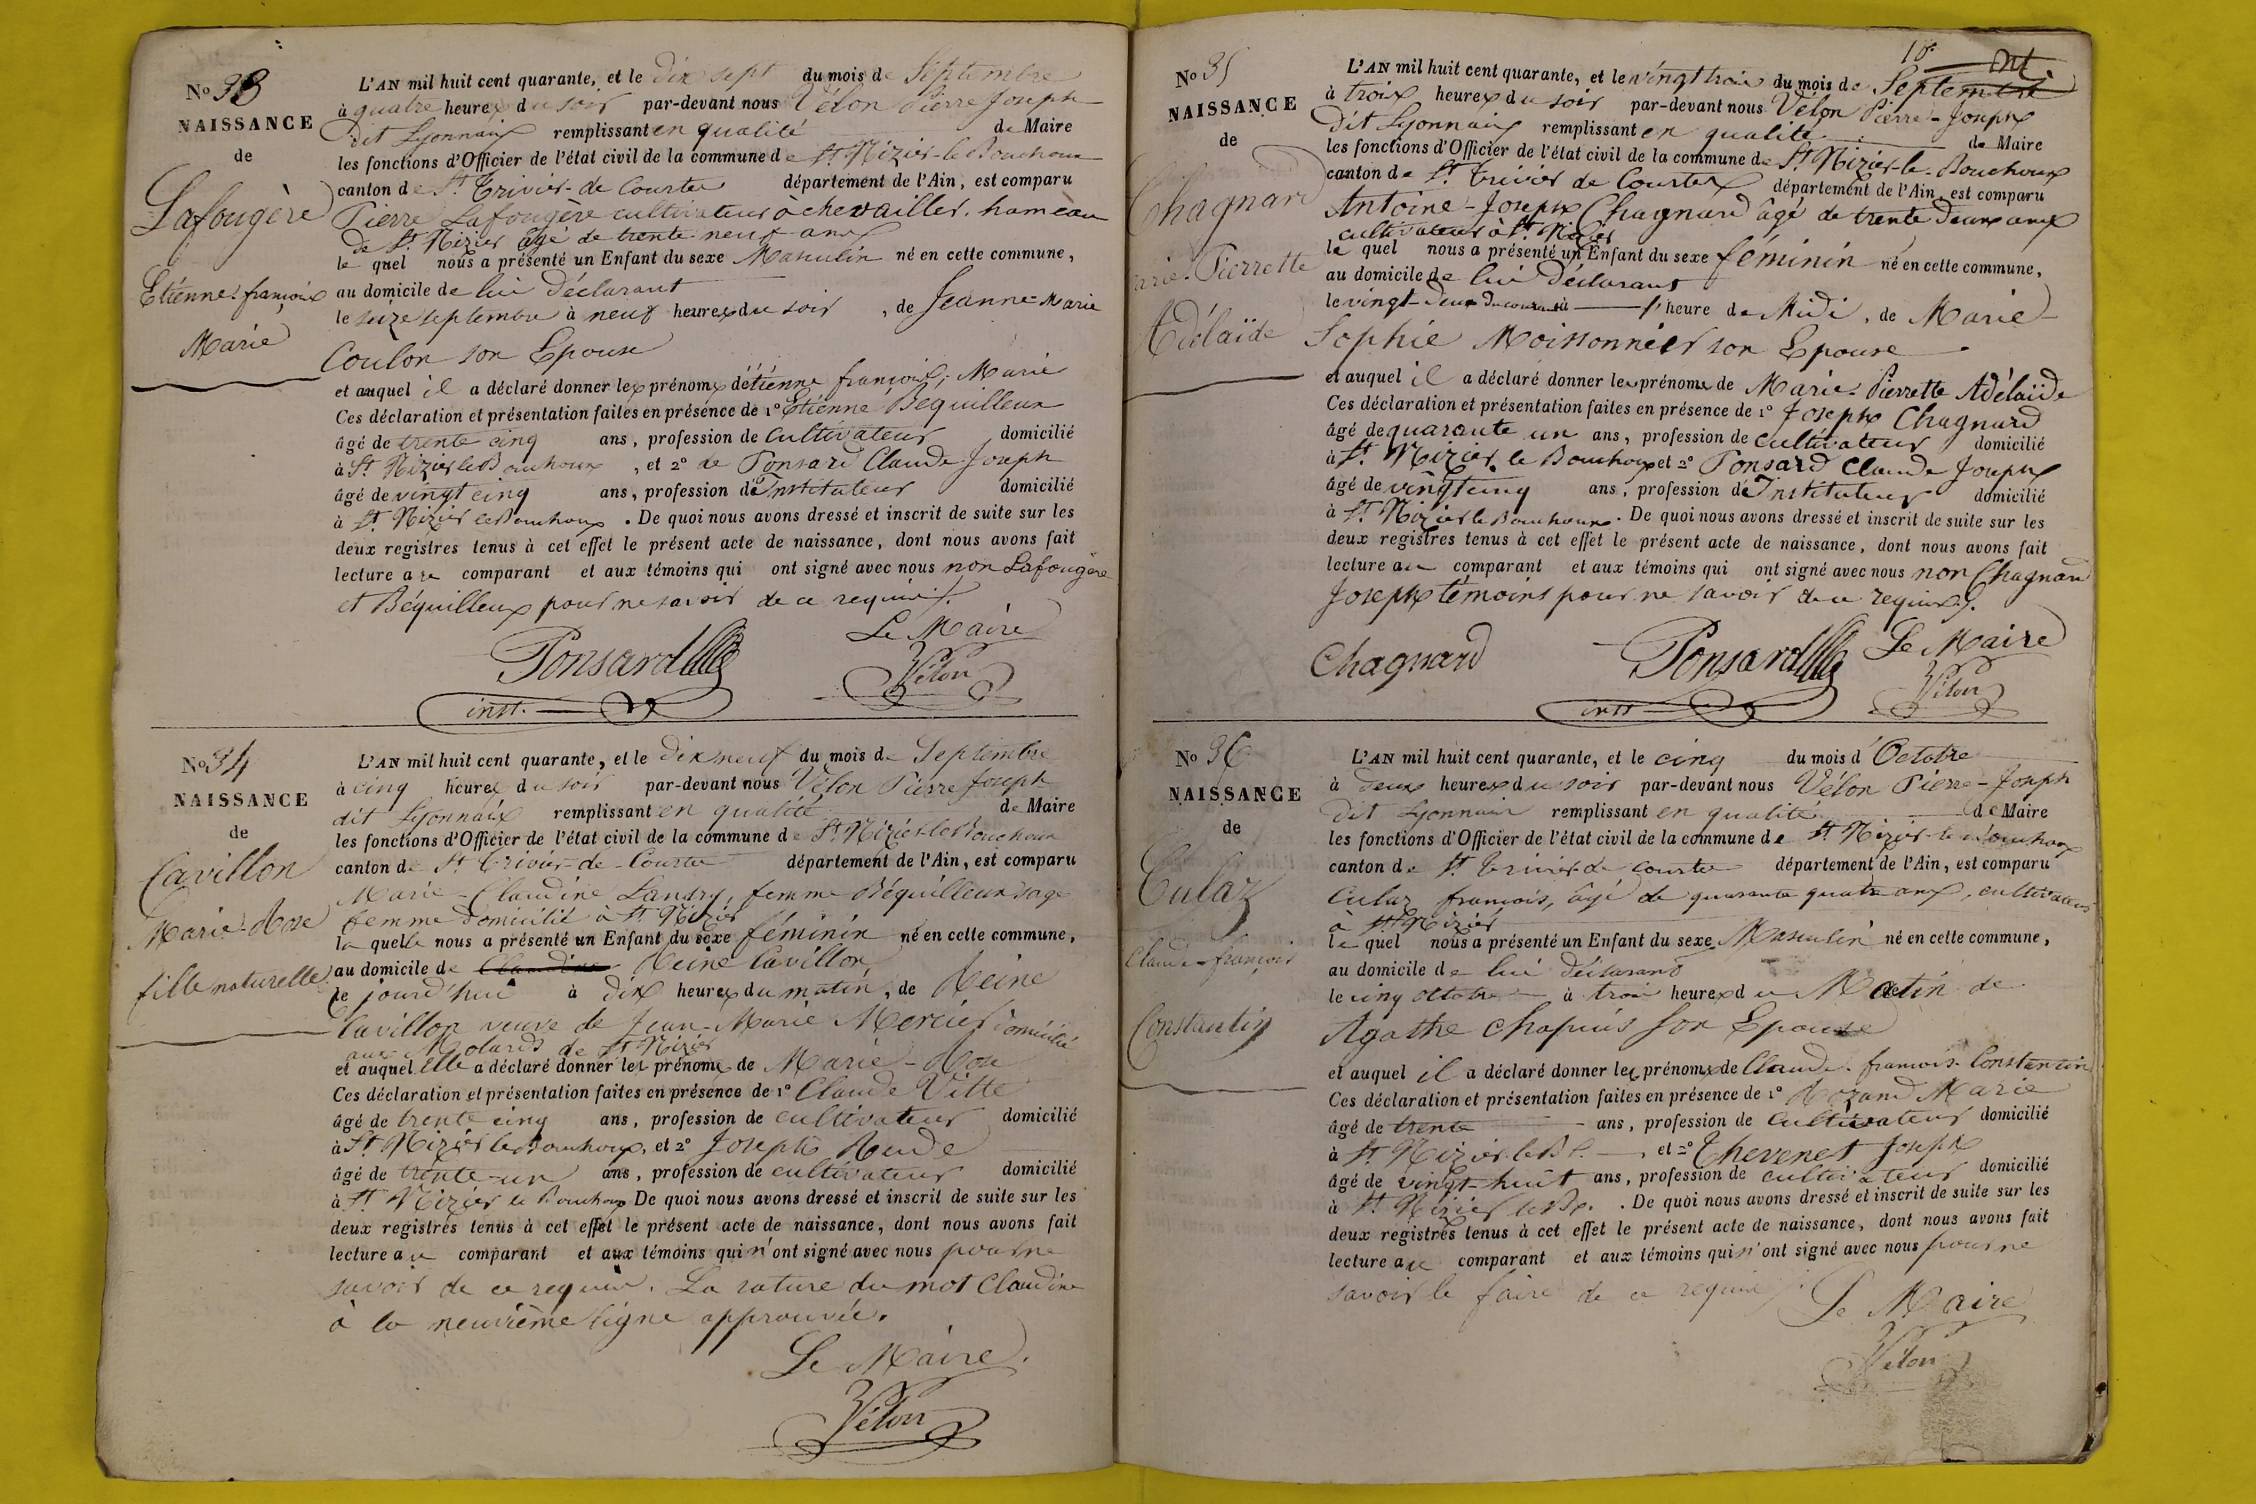 No 33
NAISSANCE
de
Lafougère
Etienne-françois
Marie
L'AN mil huit cent quarante, et le dix sept du mois de Septembre
à quatre heures du soir par-devant nous Vélon Pierre Joseph
dit Lyonnais remplissant en qualité de Maire
les fonctions d'Officier de l'état civil de la commune de St. Nizier-le-Bouchoux
canton de St. Trivier-de Courtes département de l'Ain, est comparu
Pierre Lafougère cultivateur à chevailler, hameau
de St. Nizier âgé de trente-neuf ans
le quel nous a présenté un Enfant du sexe Masculin né en cette commune,
au domicile de lui Déclarant
le seize septembre à neuf heures du soir, de Jeanne-Marie
Coulon son Epouse
et auquel il a déclaré donner les prénoms d'étienne françois, Marie
Ces déclaration et présentation faites en présence de 1º Etienne Bequilleux
âgé de trente cinq ans, profession de cultivateur domicilié
à St. Nizier le Bouchoux, et 2º de Ponsard Claude Joseph
âgé de vingt cinq ans, profession d'Instituteur domicilié
à St. Nizier le Bouchoux. De quoi nous avons dressé et inscrit de suite sur les
deux registres tenus à cet effet le présent acte de naissance, dont nous avons fait
lecture au comparant et aux témoins qui ont signé avec nous non Lafougère
et Béquilleux pour ne savoir de ce requis.
Le Maire
Ponsard Vélon
inst.
No 34
NAISSANCE
de
Cavillon
Marie-Rose
fille naturelle
L'AN mil huit cent quarante, et le dix neuf du mois de Septembre
à cinq heures du soir par-devant nous Vélon Pierre Joseph
dit Lyonnais remplissant en qualité de Maire
les fonctions d'Officier de l'état civil de la commune de St. Nizier le Bouchoux
canton de St. Trivier-de-Courtes département de l'Ain, est comparu
Marie-Claudine Landry, femme Béquilleux sage
femme domicilié à St. Nizier
la quelle nous a présenté un Enfant du sexe féminin né en cette commune,
au domicile de Claudine Reine Cavillon
le jourd'hui à dix heures du matin, de Reine
Cavillon veuve de Jean-Marie Mercier domicilié
aux Molards de St. Nizier
et auquel elle a déclaré donner les prénoms de Marie-Rose
Ces déclaration et présentation faites en présence de 1º Claude Vitte
âgé de trente cinq ans, profession de cultivateur domicilié
à St. Nizier le Bouchoux, et 2º Joseph Rude
âgé de trente-un ans, profession de cultivateur domicilié
à St. Nizier le Bouchoux De quoi nous avons dressé et inscrit de suite sur les
deux registres tenus à cet effet le présent acte de naissance, dont nous avons fait
lecture au comparant et aux témoins qui n'ont signé avec nous pour ne
savoir de ce requis. La rature du mot Claudine
à la neuvième ligne approuvée.
Le Maire.
Vélon
10.
No 35
NAISSANCE
de
Chagnard
arie-Pierrette
Adélaïde
L'AN mil huit cent quarante, et le vingt trois du mois de Septembre
à trois heures du soir par-devant nous Vélon Pierre-Joseph
dit Lyonnais remplissant en qualité de Maire
les fonctions d'Officier de l'état civil de la commune de St. Nizier-le-Bouchoux
canton de St. Trivier de Courtes département de l'Ain, est comparu
Antoine-Joseph Chagnard âgé de trente deux ans
cultivateur à St. Nizier
le quel nous a présenté un Enfant du sexe féminin né en cette commune,
au domicile de lui Déclarant
le vingt-deux du courant à l'heure de Midi, de Marie
Sophie Moissonnier son Epouse
et auquel il a déclaré donner les prénoms de Marie-Pierrette Adélaïde
Ces déclaration et présentation faites en présence de 1º Joseph Chagnard
âgé de quarante un ans, profession de cultivateur domicilié
à St. Nizier le Bouchoux et 2º Ponsard Claude Joseph
âgé de vingt cinq ans, profession d'Instituteur domicilié
à St. Nizier le Bouchoux. De quoi nous avons dressé et inscrit de suite sur les
deux registres tenus à cet effet le présent acte de naissance, dont nous avons fait
lecture au comparant et aux témoins qui ont signé avec nous non Chagnard
Joseph témoins pour ne savoir de ce requis.
Chagnard Ponsard Le Maire
inst Vélon
No 36
NAISSANCE
de
Culaz
Claude-françois
Constantin
L'AN mil huit cent quarante, et le cinq du mois d'Octobre
à deux heures du soir par-devant nous Vélon Pierre-Joseph
dit Lyonnais remplissant en qualité de Maire
les fonctions d'Officier de l'état civil de la commune de St Nizier-le-Bouchoux
canton de St. Trivier-de courtes département de l'Ain, est comparu
Culaz françois, âgé de quarante quatre ans, cultivateur
à St Nizier
le quel nous a présenté un Enfant du sexe Masculin né en cette commune,
au domicile de lui Déclarant
le cinq octobre à trois heures du Matin de
Agathe Chapuis son Epouse
et auquel il a déclaré donner les prénoms de Claude-françois-Constantin
Ces déclaration et présentation faites en présence de 1º Morand Marie
âgé de trente ans, profession de cultivateur domicilié
à St Nizier le B. , et 2º Thevenet Joseph
âgé de vingt-huit ans, profession de cultivateur domicilié
à St Nizier le Bx. . De quoi nous avons dressé et inscrit de suite sur les
deux registres tenus à cet effet le présent acte de naissance, dont nous avons fait
lecture au comparant et aux témoins qui n'ont signé avec nous pour ne
savoir le faire de ce requis
Le Maire
Vélon